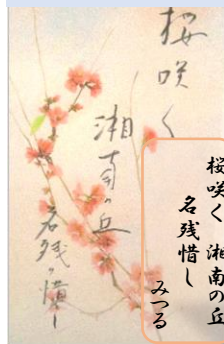 桜咲く
湘南の丘
名残惜し
桜咲く 湘南の丘
名残惜し
みつる